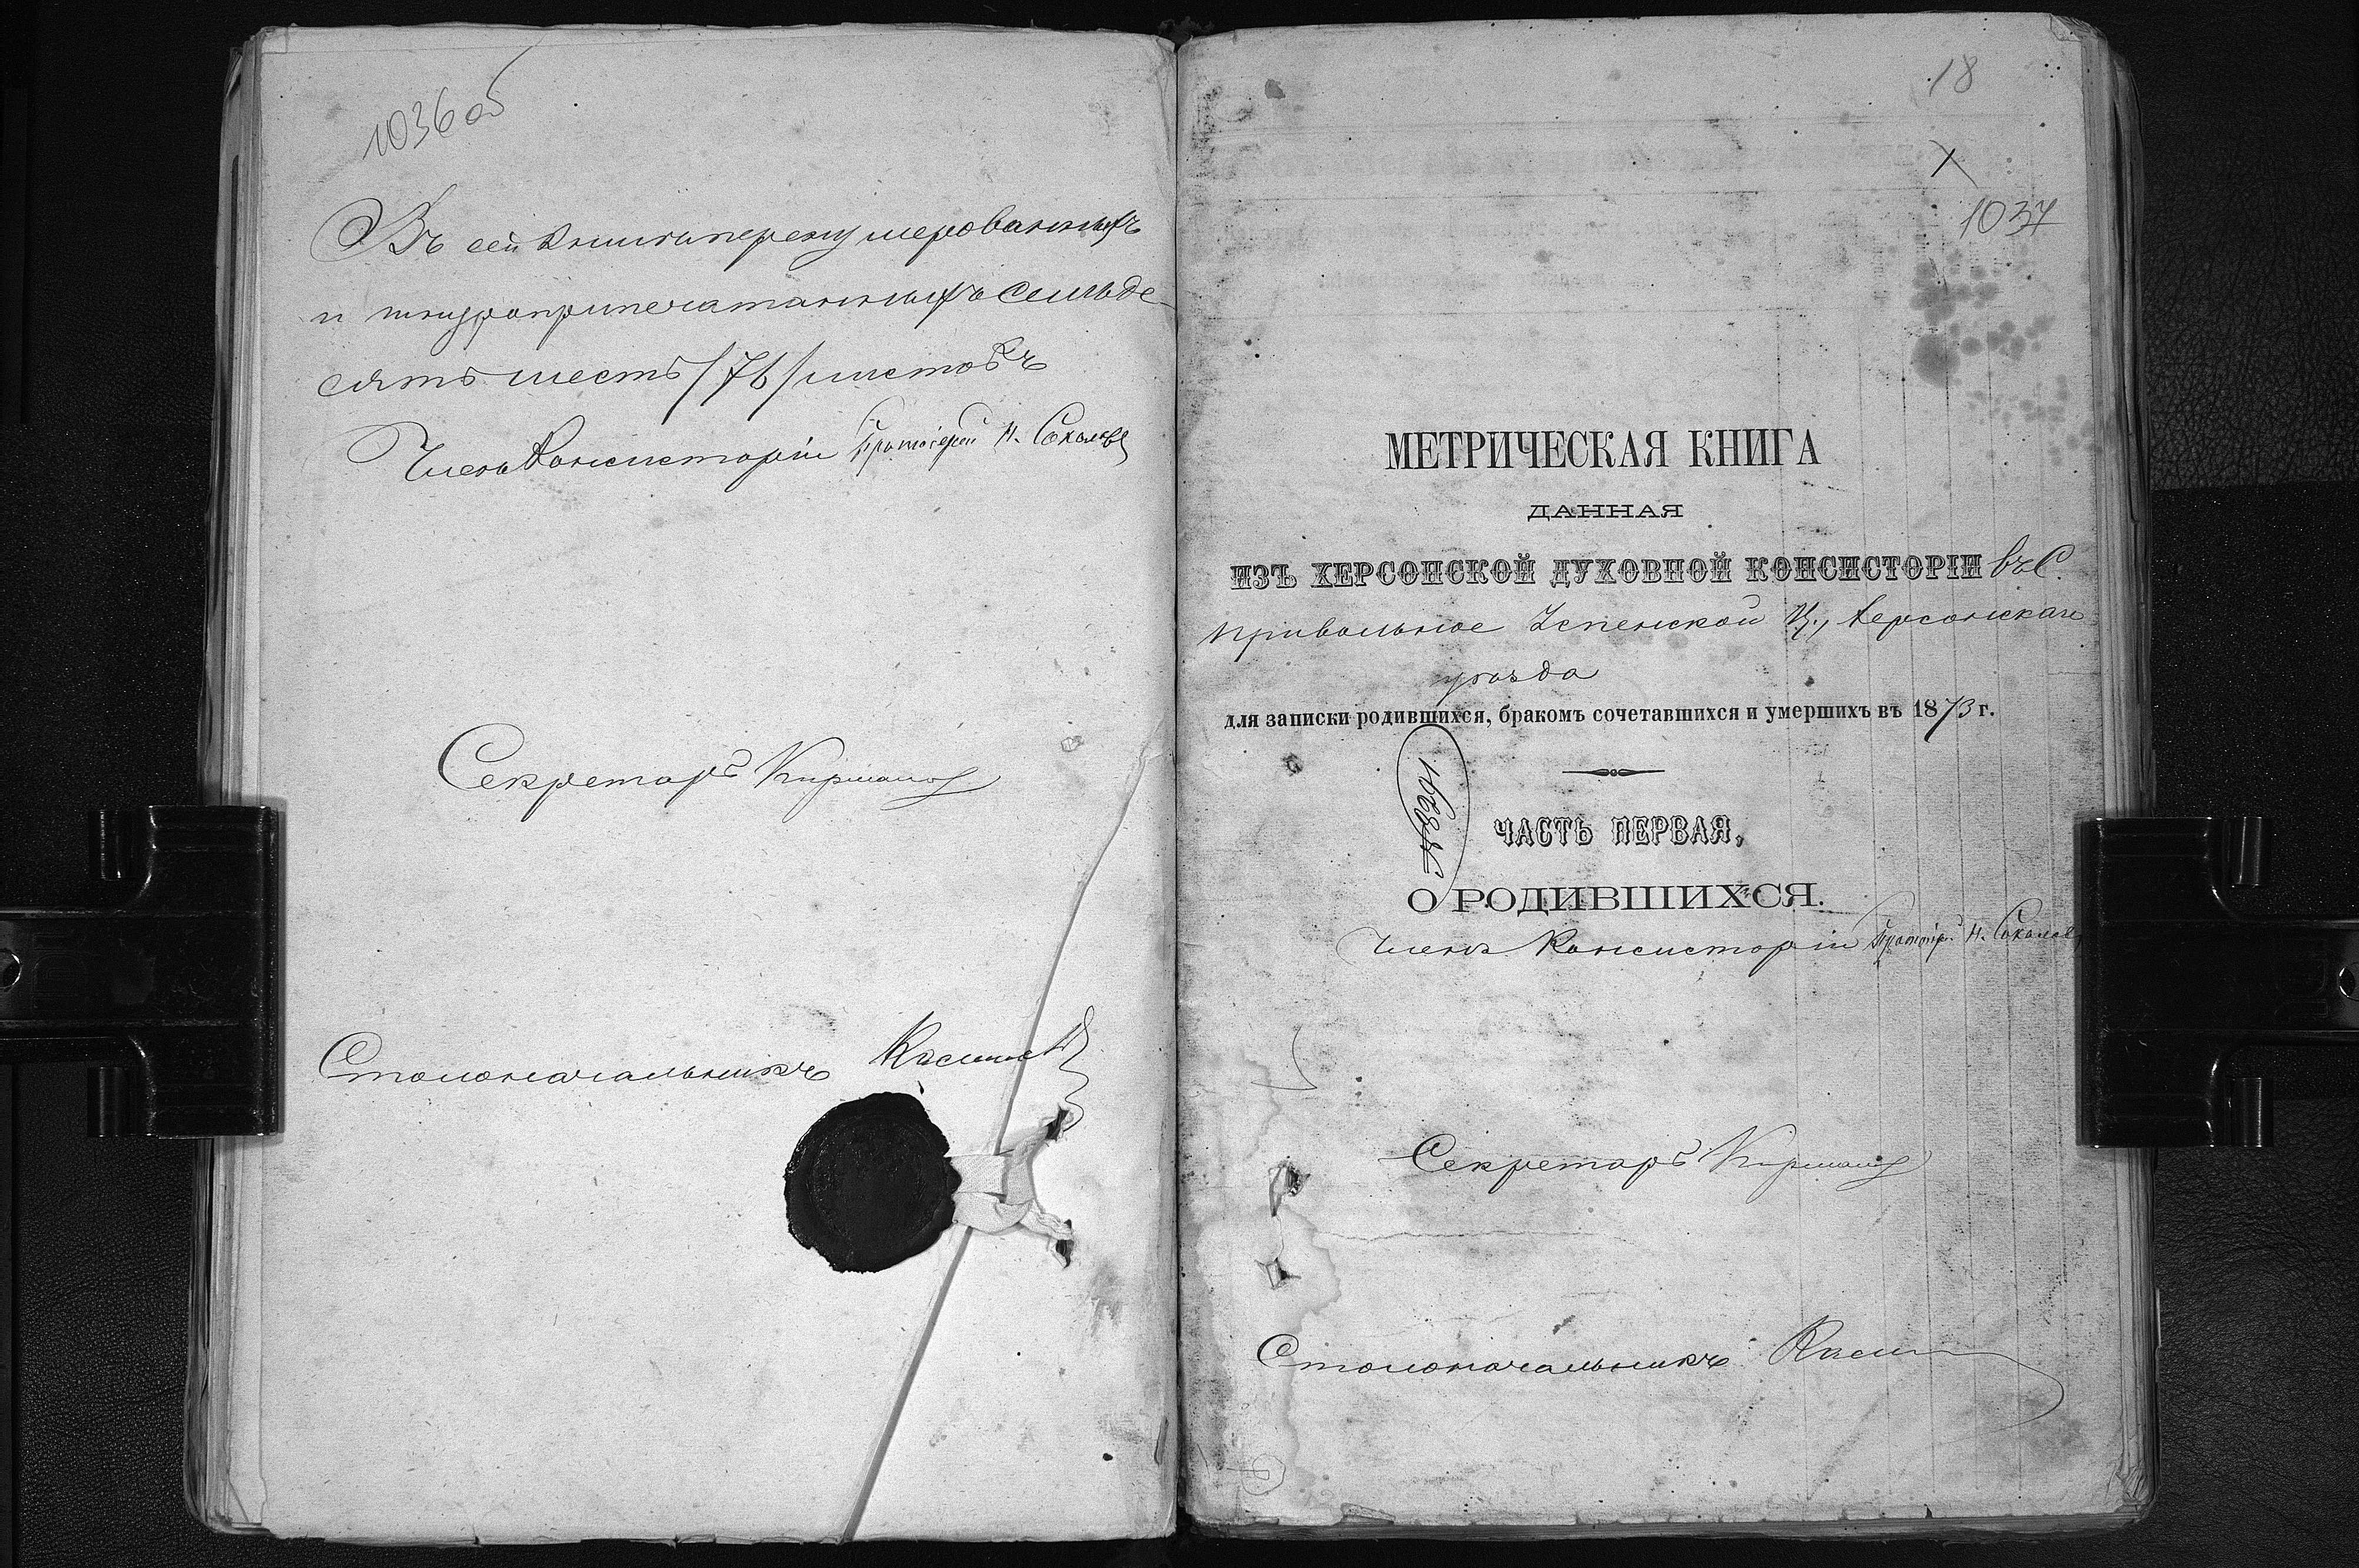 1036 об
Въ сей книги перенумерованныхъ
и шнуроприпечатанныхъ семьде-
сятъ шесть /76/ листовъ
Членъ Консисторіи Протоіерей Н. Соколовъ
Секретарь
Столоначальникъ
18
1037
МЕТРИЧЕСКАЯ КНИГА
ДАННАЯ
ИЗЪ ХЕРСОНСКОЙ ДУХОВНОЙ КОНСИСТОРІИ въ С.
Привольное Успенской Ц., Херсонскаго
уѣзда
для записки родившихся, бракомъ сочетавшихся и умершихъ въ 1873 г.
ЧАСТЬ ПЕРВАЯ,
О РОДИВШИХСЯ.
Членъ Консисторіи Протоіер. Н. Соколовъ
Секретарь
Столоначальникъ